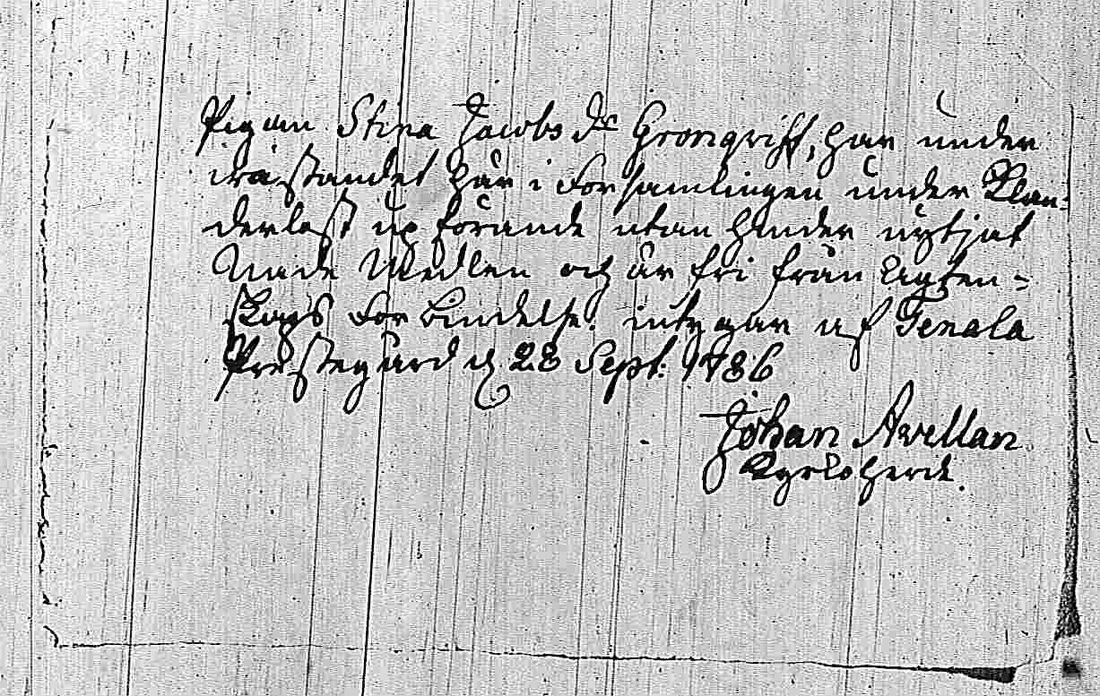 Pigan Stina Jacobs dr Gronqvist, har under
wistandet här i Församlingen under Klan-
derlöst upförande utan hinder nytjat
Nåde Medlen och är fri från Ägten-
skaps Förbindelse. intygar af Tenala
Prästegård d. 28 Sept. 1786
Johan Avellan
Kyrkoherde.